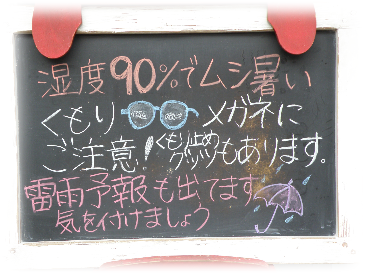 湿度90%でムシ暑い
くもりメガネに
ご注意！くもり止めグッズもあります。
雷雨予報も出てます
気を付けましょう